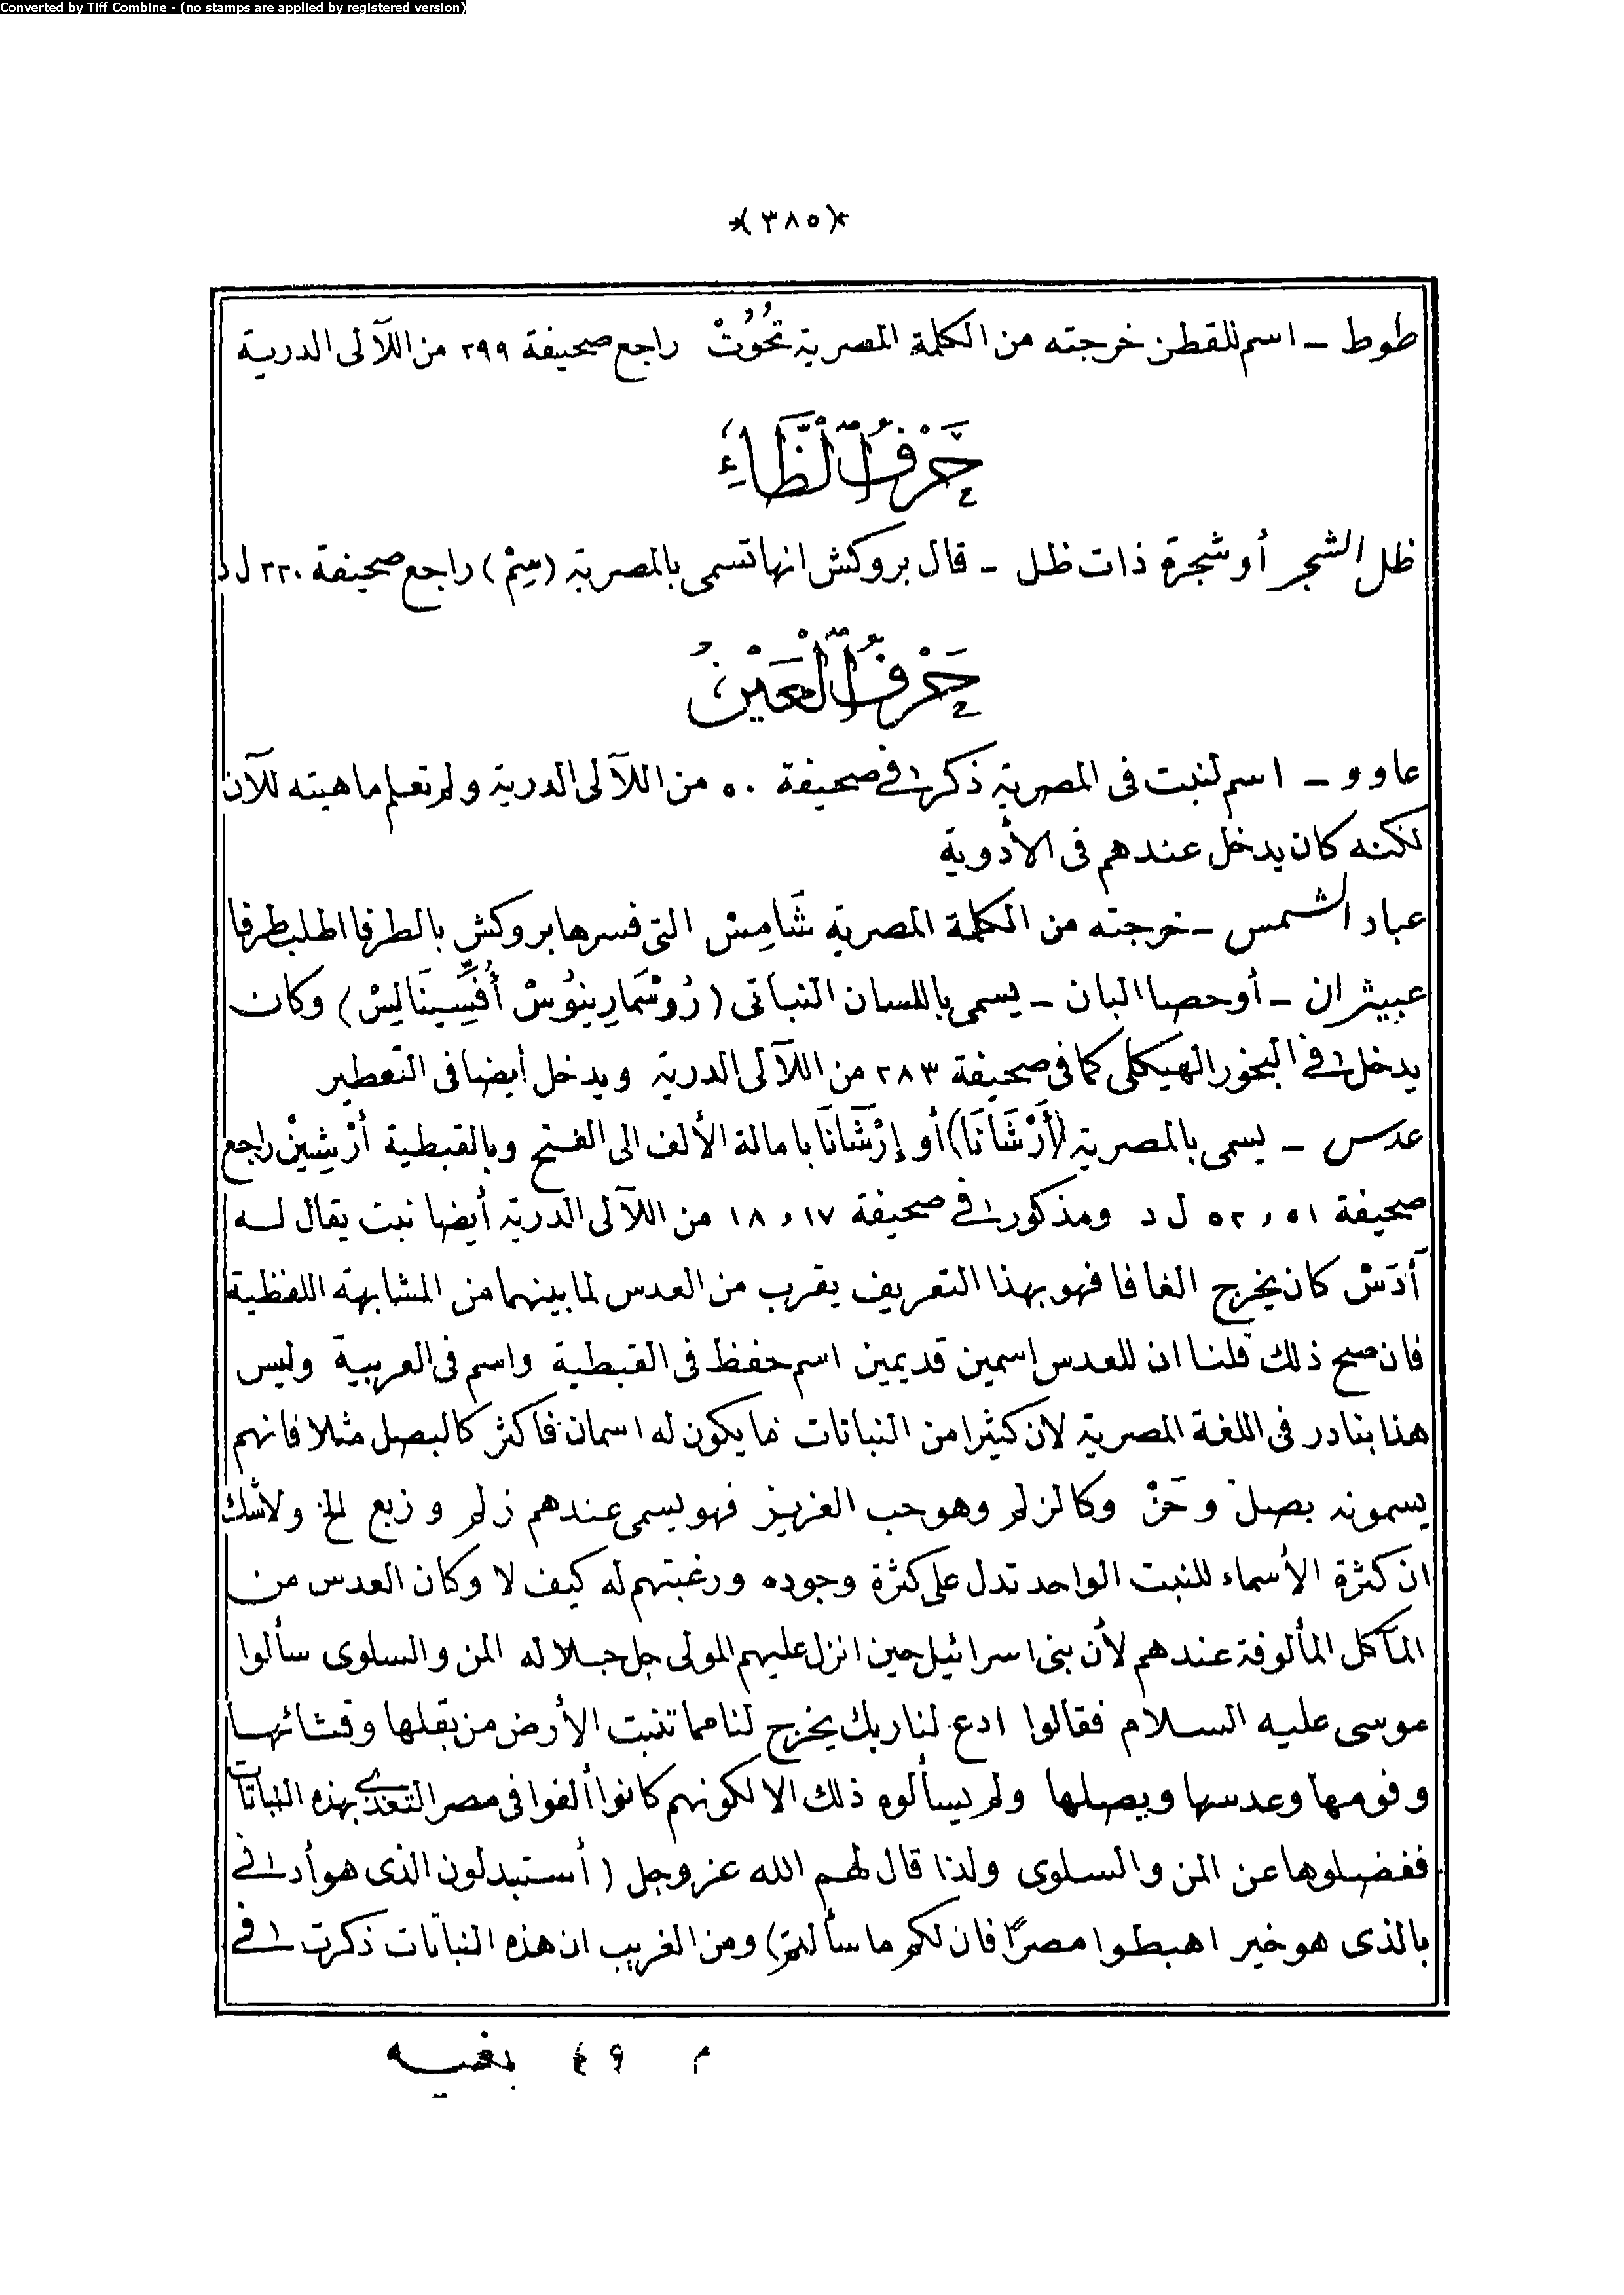 Converted by Tiff Combine - (no stamps are applied by registered version)
*(٣٨٥)*
طوط ـ اسم للقطن خرجته من الكلمة المصرية تحُوُثْ راجع صحيفة ٢٩٩ من اللآلى الدرية
حَرْفُ الْظَّاءِ
ظل الشجر أو شجرة ذات ظل ـ قال بروكش انها تسمى بالمصرية (سِيِمْ) راجع صحيفة ٢٢٠ ل د
حَرْفُ الْعَيْنُ
عاوو ـ اسم لنبت فى المصرية ذكر فى صحيفة ٥٠ من اللآلى الدرية ولم تعلم ماهيته للآن
لكنه كان يدخل عندهم فى الأدوية
عباد الشمس ـ خرجته من الكلمة المصرية شَامِسْ التى فسرها بروكش بالطرفا اطلب طرفا
عبيثران ـ أو حصا البان ـ يسمى باللسان النباتى (رُوسْمَارِينُوسْ أُفِسِّينَالِيسْ) وكان
يدخل فى البخور الهيكلى كما فى صحيفة ٢٨٣ من اللآلى الدرية ويدخل أيضا فى التعطير
عدس ـ يسمى بالمصرية (أَرْشَانَا) أو إرْشَانَا بامالة الألف الى الفتح وبالقبطية أرْشِيْن راجع
صحيفة ٥١ و ٥٢ ل د ومذكور فى صحيفة ١٧ و ١٨ من اللآلى الدرية أيضا نبت يقال له
أَدَسْ كان يخرج الغافا فهو بهذا التعريف يقرب من العدس لما بينهما من المشابهة اللفظية
فان صح ذلك قلنا ان للعدس اسمين قديمين اسم حفظ فى القبطية واسم فى العربية وليس
هذا بنادر فى اللغة المصرية لان كثيرا من النباتات ما يكون له اسمان فاكثر كالبصل مثلا فانهم
يسمونه بصل و حَنْ وكالزلم وهو حب العزيز فهو يسمى عندهم زلم و زبع الخ ولاشك
ان كثرة الأسماء للنبت الواحد تدل على كثرة وجوده ورغبتهم له كيف لا وكان العدس من
المآكل المألوفة عندهم لأن بنى اسرائيل حين انزل عليهم المولى جل جلاله المن والسلوى سألوا
موسى عليه السلام فقالوا ادع لنا ربك يخرج لنا مما تنبت الأرض من بقلها وقثائها
وفومها وعدسها وبصلها ولم يسألوه ذلك الا لكونهم كانوا ألفوا فى مصر التغذى بهذه النباتات
ففضلوها عن المن والسلوى ولذا قال لهم الله عز وجل (أستبدلون الذى هو أدنى
بالذى هو خير اهبطوا مصرًا فان لكم ما سألتم) ومن الغريب ان هذه النباتات ذكرت فى
م ٤٩ بغيه